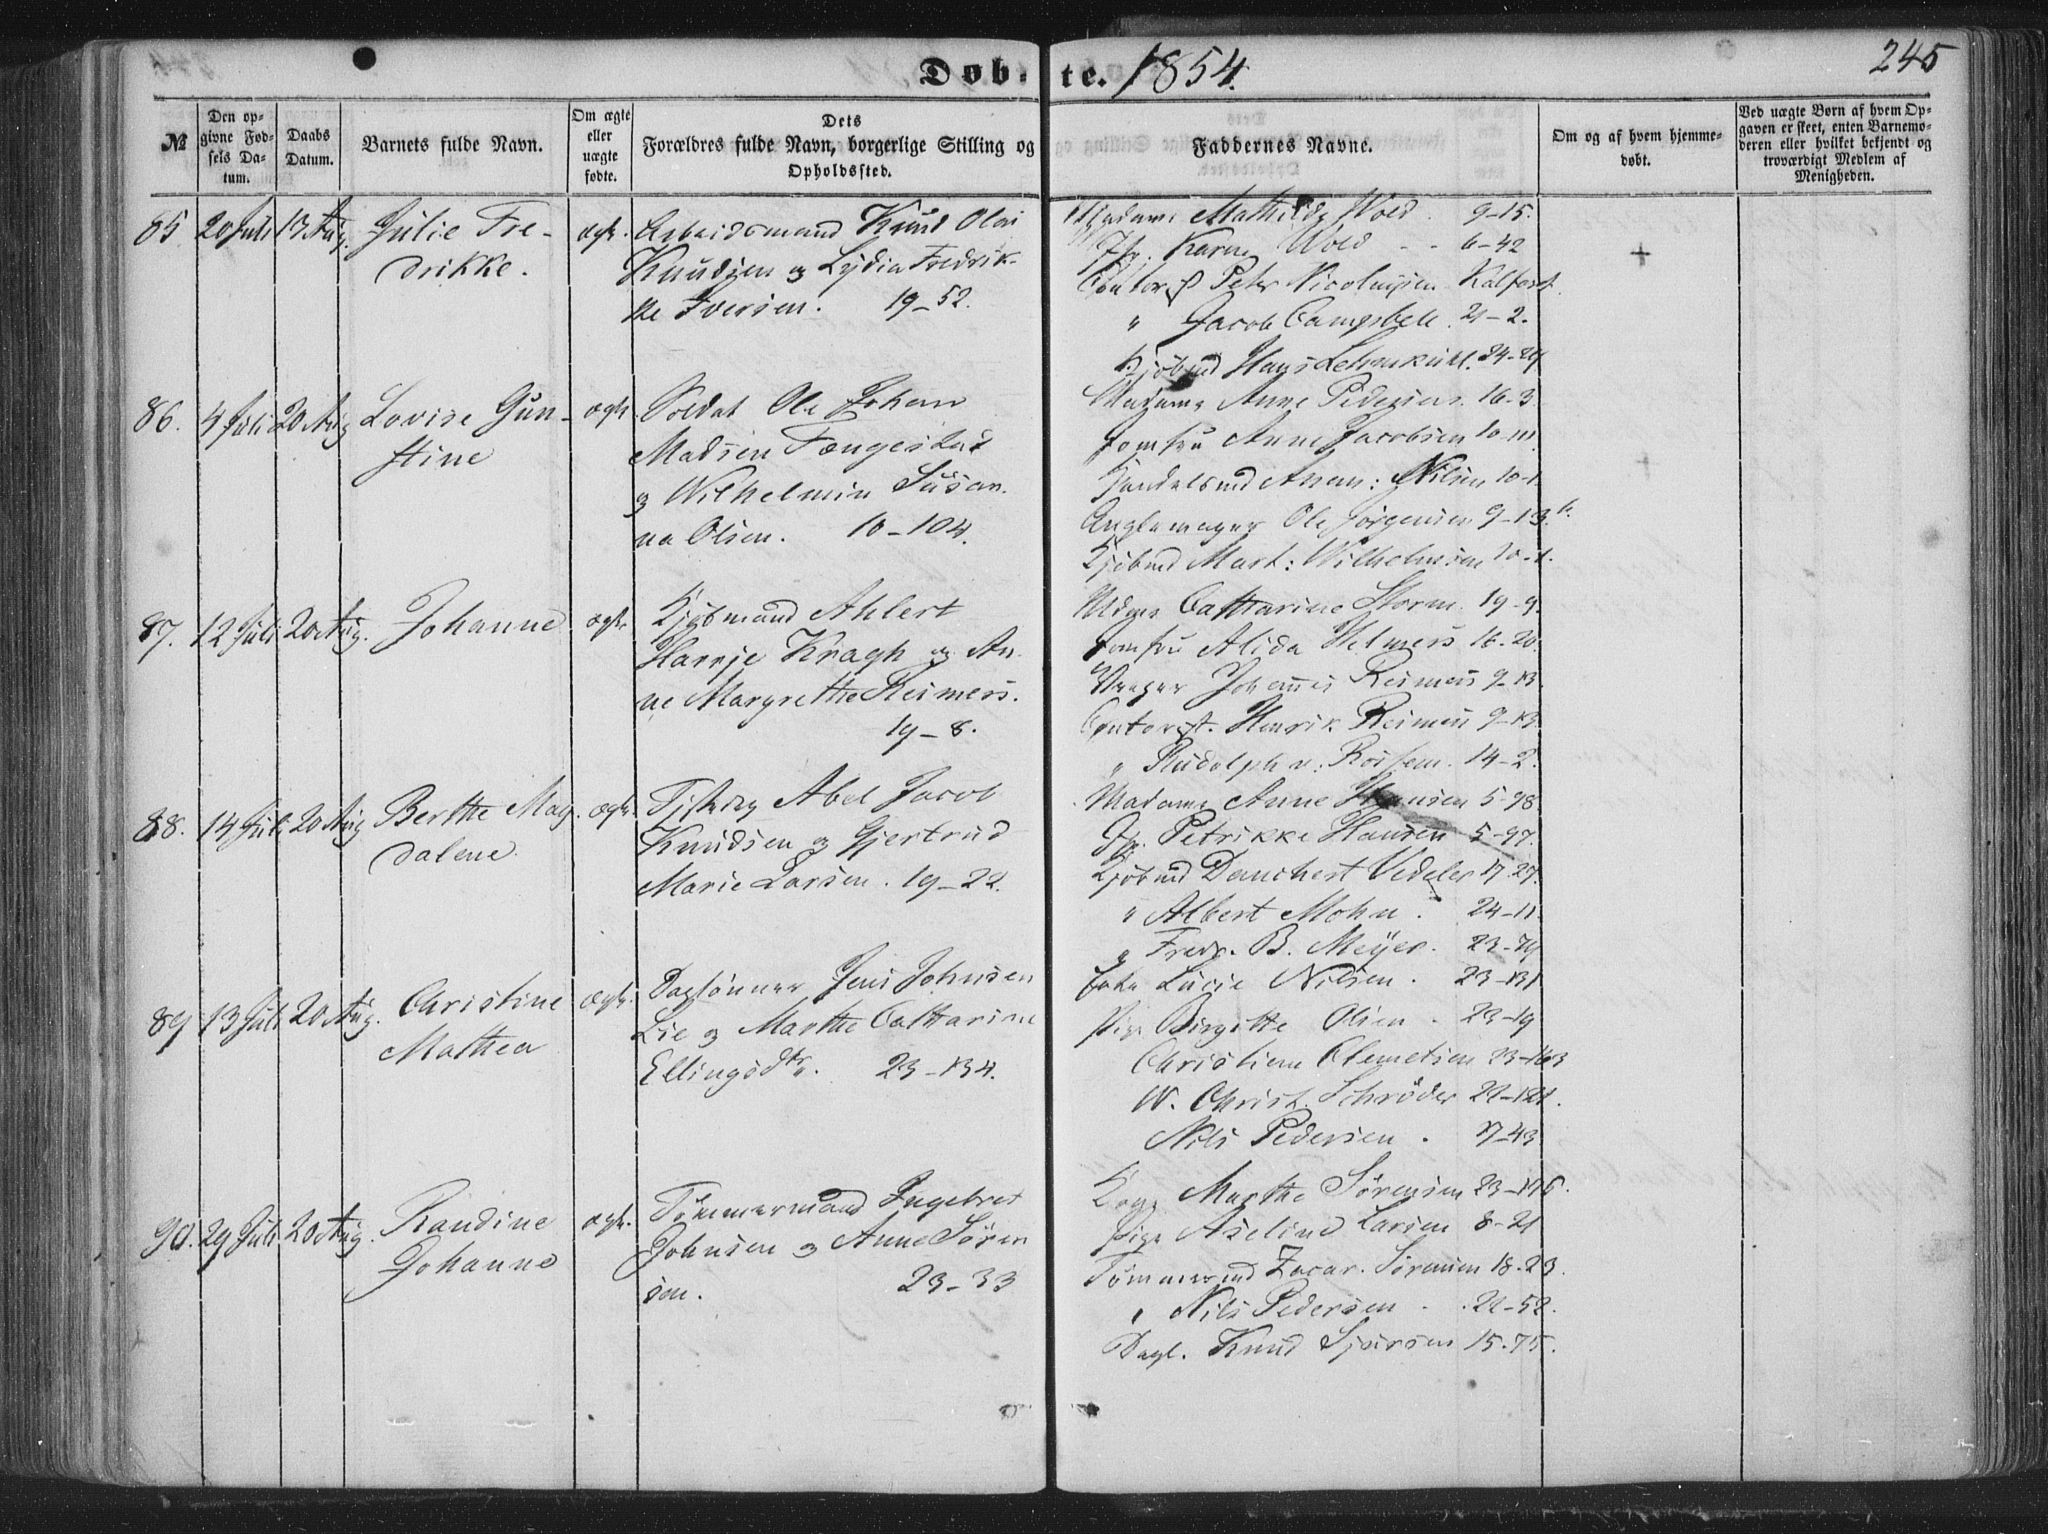 Døbte. 1854. 245
№
Den opgivne Fødsels Datum.
Daabs Datum.
Barnets fulde Navn.
Om ægte eller uægte fødte.
Dets Forældres fulde Navn, borgerlige Stilling og Opholdssted.
Faddernes Navne.
Om og af hvem hjemmedøbt.
Ved uægte Børn af hvem Opgaven er skeet, enten Barnemoderen eller hvilket bekjendt og troværdigt Medlem af Menigheden.
85. 20 Juli 13 Aug. Julie Fre-
drikke.
ægte. Arbeidsmand Knud Olai
Knudsen og Lydia Fredrik-
ke Iversen. 19-52.
Madame Mathilde Wold. 9-15.
Jfr. Karen Wold 6-42
Contorist Peter Nicolaysen Kalfaret.
" Jacob Campbell. 21-2.
Kjøbmd Hans 24-29
+
86. 4 Juli 20 Aug Lovise Gun-
stine
ægte. Soldat Ole Johan
Madsen Tængestad
og Wilhelmin Susan-
na Olsen. 10-104.
Madame Anne Pedersen. 16-3.
Jomfru Anne Jacobsen 10-111.
Handelsmd Anen: Nilsen 10-1.
Ole Jørgensen 9-13 b.
Kjøbmd Mart: Wilhelmsen 10-1.
+
87. 12 Juli 20 Aug. Johanne
ægte. Kjøbmand Ahlert
Harrje Kragh og An-
ne Margrethe Reimers.
19-8.
Mdme Catharine Storm. 19-9.
Jomfru Alida Helmers 16-20.
Johannes Reimers 9-13.
Contorist. Henrik Reimers 9-13.
" Rudolph v. Rossem. 14-2.
88. 14 Juli 20 Aug Berthe Mag-
dalene.
ægte. Abel Jacob
Knudsen og Gjertrud
Marie Larsen. 19-22.
Madame Anne Hansen 5-98.
Jfr. Petrikke Hansen 5-97.
Kjøbmd Danchert Vedeler 17-27.
" Albert Mohn. 24-11.
" Fredr. B. Meyer. 23-79
89. 13 Juli 20 Aug. Christine
Mathea
ægte. Daglønner Jens Johnsen
Lie og Marthe Catharine
Ellingsdtr. 23-134.
Enke Lucie Nilsen. 23-131
Pige Birgitte Olsen. 23-19
Christiane Clemetsen 23-163
W. Christ. Schrøder 22-121.
Nils Pedersen. 17-43
90. 29 Juli 20 Aug. Randine
Johanne
ægte. Tømmermand Ingebret
Johnsen og Anne Søren-
sen. 23-33
Kone Marthe Sørensen 23-175.
Pige Aseline Larsen 8-21
Tømmermd Zacar. Sørensen 18-23.
" Nils Pedersen. 22-52.
Dagl. Knud Sjursen 15-75.